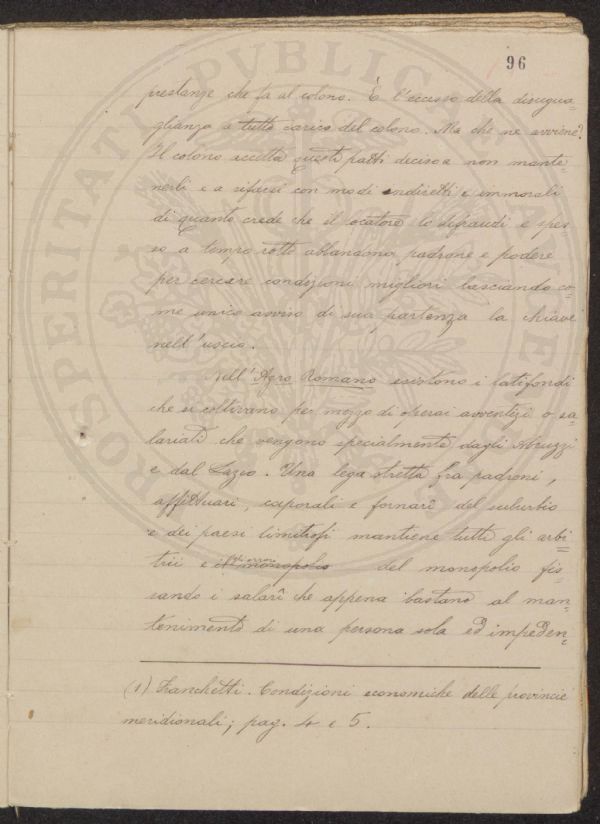 96
prestanze che fa al colono. È l'eccesso della disugua-
glianza a tutto carico del colono. Ma che ne avviene?
Il colono accetta questi patti deciso a non mante-
nerli e a rifarsi con modi indiretti e immorali
di quanto crede che il locatore lo defraudi e spes-
so a tempo rotto abbandona padrone e podere
per cercare condizioni migliori lasciando co-
me unico avviso di sua partenza la chiave
nell'uscio.
Nell'Agro Romano esistono i latifondi
che si coltivano per mezzo di operai avventizi o sa-
lariati che vengono specialmente dagli Abruzzi
e dal Lazio. Una lega stretta fra padroni,
affittuari, caporali e fornari del suburbio
e dei paesi limitrofi mantiene tutti gli arbi-
trii e gli orrori del monopolio fis-
sando i salarî che appena bastano al man-
tenimento di una persona sola ed impeden-
(1) Franchetti. Condizioni economiche delle provincie
meridionali; pag. 4 e 5.
PROSPERITATI PVBLICAE AVGENDAE